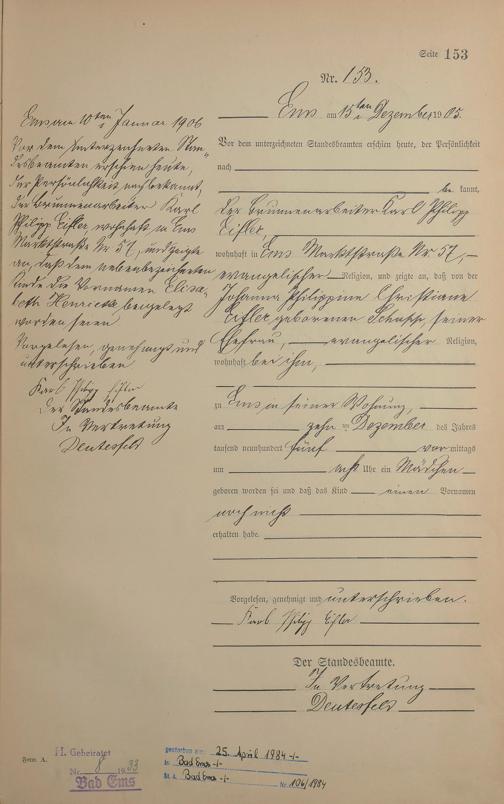 Seite 153
Nr. 153.
Ems am 15ten Dezember 1905.
Vor dem unterzeichneten Standesbeamten erschien heute, der Persönlichkeit
nach
be kannt,
der Brunnenarbeiter Karl Philipp
Eifler
wohnhaft in Ems Marktstraße Nr. 57,
evangelischer Religion, und zeigte an, daß von der
Johanna Philippine Christiane
Eifler, geborenen seiner
Ehefrau, evangelischer Religion,
wohnhaft bei ihm,
zu Ems in seiner Wohnung,
am zehnten Dezember des Jahres
tausend neunhundert fünf vormittags
um acht Uhr ein Mädchen
geboren worden sei und daß das Kind einen Vornamen
noch nicht
erhalten habe.
Vorgelesen, genehmigt und unterschrieben.
Karl Philipp Eifler
Der Standesbeamte.
In Vertretung
Deutesfeld
Ems am 10ten Januar 1906
Vor dem unterzeichneten Stan-
desbeamten erschien heute,
der Persönlichkeit nach bekannt,
der Brunnenarbeiter Karl
Philipp Eifler, wohnhaft in Ems
Marktstraße Nr. 57, und zeigte
an, daß dem nebenbezeichneten
Kinde die Vornamen Elisa-
beth Henriette beigelegt
worden seien
Vorgelesen, genehmigt und
unterschrieben
Karl Philipp Eifler
Der Standesbeamte
In Vertretung
Deutesfeld
Form. A.
H. Geheiratet
Nr. 8 1933
Bad Ems
gestorben am: 25. April 1984 -/-
in Bad Ems -/-
St. A. Bad Ems -/-
Nr. 106/1984